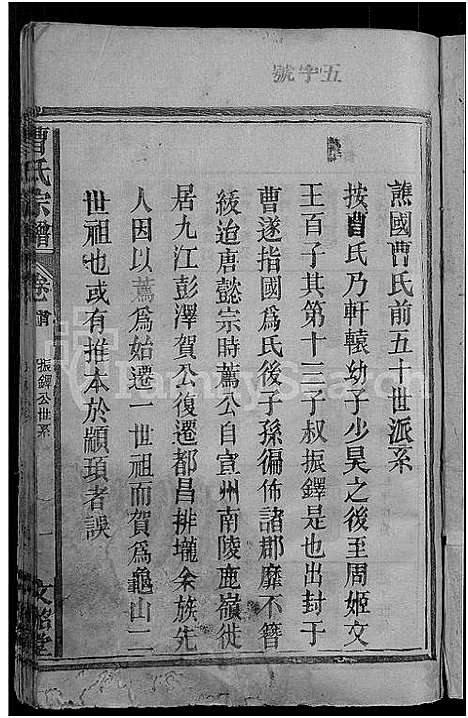 五字號
譙國曹氏前五十世派系
按曹氏乃軒轅幼子少昊之後至周姬文
王百子其第十三子叔振鐸是也出封于
曹遂指國為氏後子孫徧佈諸郡靡不簪
纓迨唐懿宗時薦公自宣州南陵鹿嶺徙
居九江彭澤賀公復遷都昌排壠余族先
人因以薦為始遷一世祖而賀為龜山二
世祖也或有推本於顓頊者誤
曹氏宗譜
卷首
振鐸公世系
一
FamilySea.cn